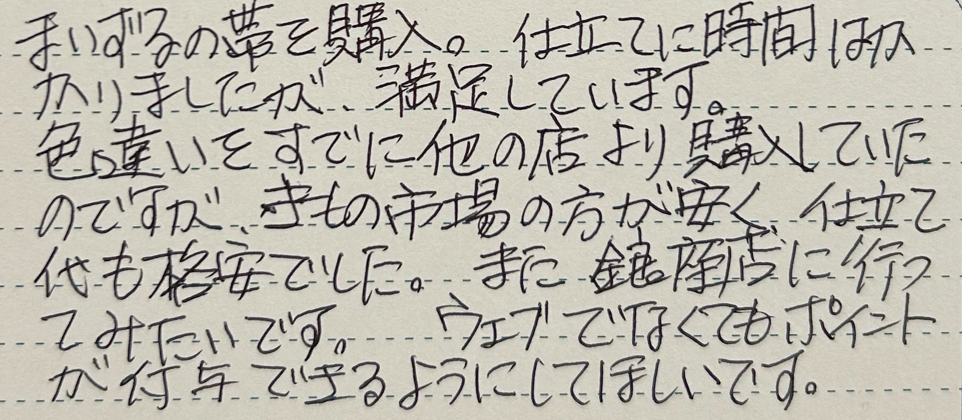 まいずるの帯を購入。 仕立てに時間はか
かりましたが、満足しています。
色違いをすでに他の店より購入していた
のですが、きもの市場の方が安く、仕立て
代も格安でした。 また銀座店に行っ
てみたいです。 ウェブでなくてもポイント
が付与できるようにしてほしいです。